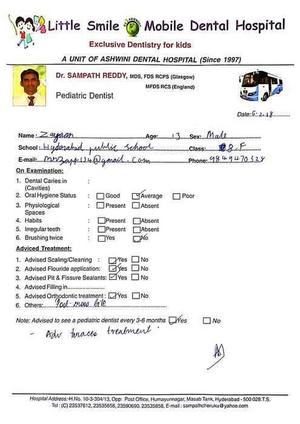 Little Smile Mobile Dental Hospital
Exclusive Dentistry for kids
A UNIT OF ASHWINI DENTAL HOSPITAL (Since 1997)
Dr. SAMPATH REDDY, MDS, FDS RCPS (Glasgow)
MFDS RCS (England)
Pediatric Dentist
Date: 5.2.18
Name: Zayaan Age: 13 Sex: Male
School: Hyderabad public school Class: 8.F
E-mail: @gmail.com Phone: 9849470528
On Examination:
1. Dental Caries in :
(Cavities)
2. Oral Hygiene Status : Good Average Poor
3. Physiological : Present Absent
Spaces
4. Habits : Present Absent
5. Irregular teeth : Present Absent
6. Brushing twice : Yes No
Adviced Treatment:
1. Advised Scaling/Cleaning : Yes No
2. Advised Flouride application: Yes No
3. Advised Pit & Fissure Sealants: Yes No
4. Advised Filling in
5. Advised Orthodontic treatment : Yes No
6. Others:
Note: Advised to see a pediatric dentist every 3-6 months Yes No
- Adv braces treatment
Hospital Address: H.No. 10-3-304/13, Opp: Post Office, Humayunnagar, Masab Tank, Hyderabad - 500 028 T.S.
Tel: (C) 23537612, 23535658, 23590690, 23535858, E-mail : sampathcheruku@yahoo.com